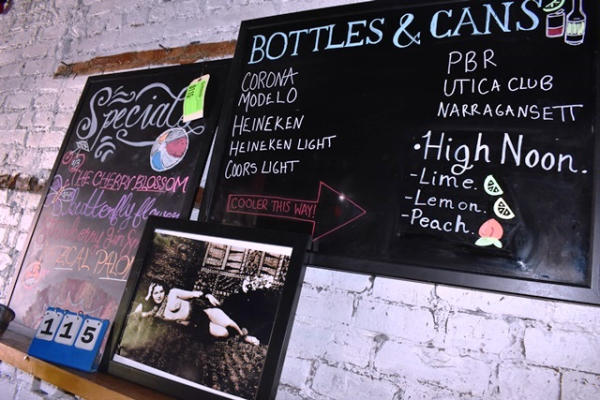 Specials
THE CHERRY BLOSSOM
Butterfly flower
115
BOTTLES & CANS
CORONA
MODELO
HEINEKEN
HEINEKEN LIGHT
COORS LIGHT
COOLER THIS WAY!
PBR
UTICA CLUB
NARRAGANSETT
•High Noon.
-Lime.
-Lemon.
-Peach.